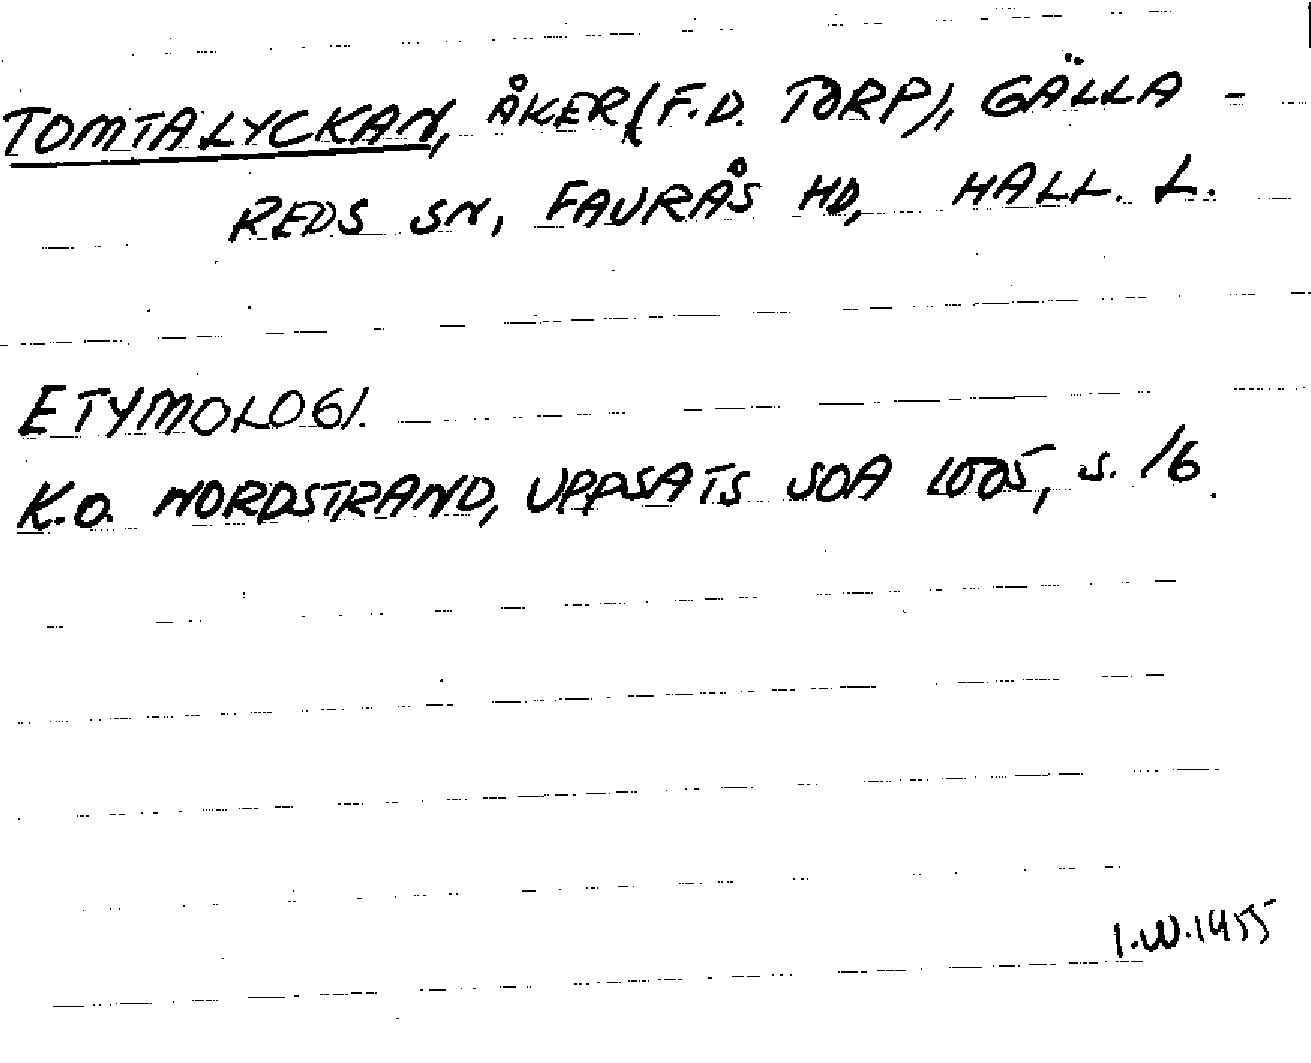 TOMTALYCKAN, ÅKER (F.D. TORP), GÄLLA-
REDS SN, FAURÅS HD, HALL. L.
ETYMOLOGI.
K.O. NORDSTRAND, UPPSATS SOA 1005, S. 16.
I.W. 1955